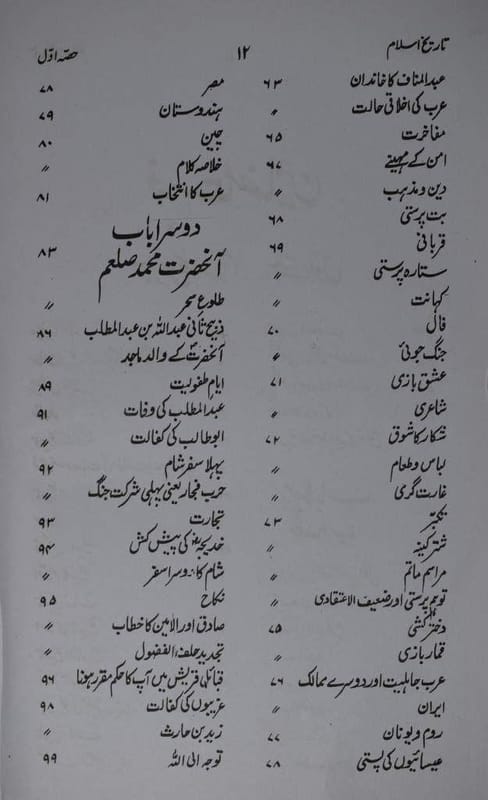 تاریخ اسلام ۱۲ حصہ اوّل
عبدالمناف کا خاندان ۶۳
عرب کی اخلاقی حالت 〃
مفاخرت ۶۵
امن کے مہینے ۶۷
دین و مذہب 〃
بت پرستی ۶۸
قربانی ۶۹
ستارہ پرستی 〃
کہانت 〃
فال ۷۰
جنگ جوئی 〃
عشق بازی ۷۱
شاعری 〃
شکار کا شوق ۷۲
لباس و طعام 〃
غارت گری 〃
تکبّر ۷۳
شتر کینہ 〃
مراسم ماتم 〃
توہم پرستی اور ضعیف الاعتقادی 〃
دختر کشی ۷۵
قمار بازی 〃
عرب جاہلیت اور دوسرے ممالک ۷۶
ایران 〃
روم و یونان ۷۷
عیسائیوں کی پستی ۷۸
مصر ۷۸
ہندوستان ۷۹
چین ۸۰
خلاصہ کلام 〃
عرب کا انتخاب ۸۱
دوسرا باب
آنحضرت محمد صلعم ۸۳
طلوع سحر 〃
ذبیح ثانی عبداللہ بن عبدالمطلب ۸۶
آنحضرتؐ کے والد ماجد 〃
ایام طفولیت ۸۹
عبدالمطلب کی وفات ۹۱
ابو طالب کی کفالت 〃
پہلا سفر شام ۹۲
حرب فجار یعنی پہلی شرکت جنگ 〃
تجارت ۹۳
خدیجہؓ کی پیش کش ۹۴
شام کا دوسرا سفر 〃
نکاح ۹۵
صادق اور الامین کا خطاب 〃
تجدید حلف الفضول 〃
قبائل قریش میں آپ کا حکم مقرر ہونا ۹۶
غریبوں کی کفالت ۹۸
زید بن حارث 〃
توجہ الی اللہ ۹۹